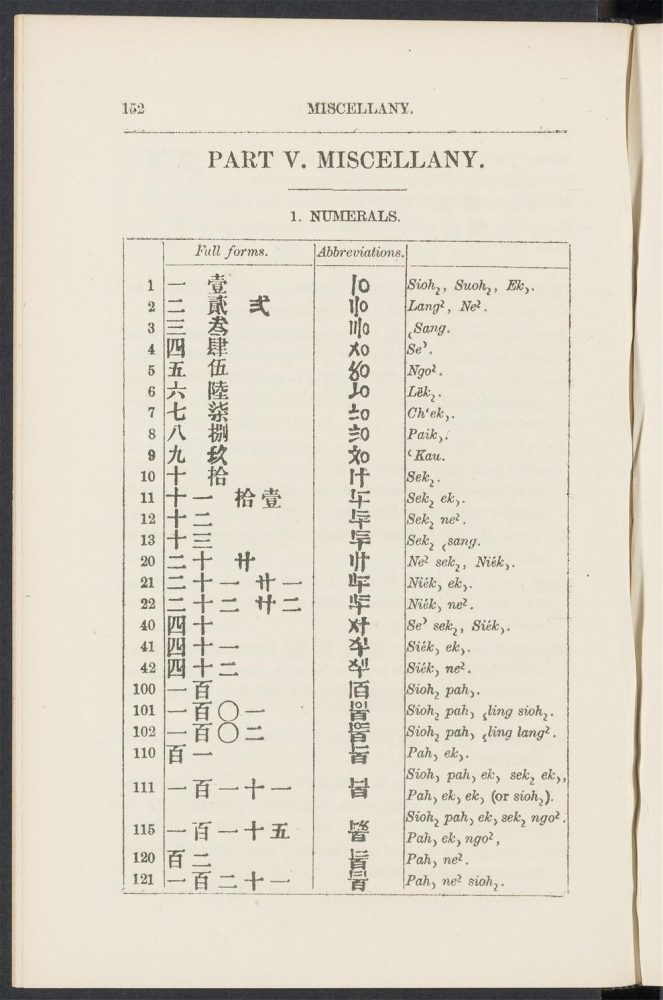 152 MISCELLANY.
PART V. MISCELLANY.
1. NUMERALS.
Full forms. Abbreviations.
1 一 壹 〡〇 Sioh˼, Suoh˼, Ek˼.
2 二 貳 弍 〢〇 Lang², Ne².
3 三 叁 〣〇 ˓Sang.
4 四 肆 〤〇 Se˒.
5 五 伍 〥〇 Ngo².
6 六 陸 〦〇 Lëk₂.
7 七 柒 〧〇 Ch‘ek˼.
8 八 捌 〨〇 Paik˼.
9 九 玖 〩〇 ʿKau.
10 十 拾 〡十 Sek₂.
11 十一 拾壹 Sek₂ ek˼.
12 十二 Sek₂ ne².
13 十三 Sek₂ ˓sang.
20 二十 廿 〢十 Ne² sek₂, Niék˼.
21 二十一 廿一 Niék˼ ek˼.
22 二十二 廿二 Niék˼ ne².
40 四十 〤十 Se˒ sek₂, Siék˼.
41 四十一 Siék˼ ek˼.
42 四十二 Siék˼ ne².
100 一百 〡百 Sioh₂ pah˼.
101 一百〇一 Sioh₂ pah˼ ˓ling sioh₂.
102 一百〇二 Sioh₂ pah˼ ˓ling lang².
110 百一 Pah˼ ek˼.
111 一百一十一 Sioh˼ pah˼ ek˼ sek₂ ek˼,
Pah˼ ek˼ ek˼ (or sioh₂).
115 一百一十五 Sioh₂ pah˼ ek˼ sek₂ ngo².
Pah˼ ek˼ ngo²,
120 百二 Pah˼ ne².
121 一百二十一 Pah˼ ne² sioh₂.